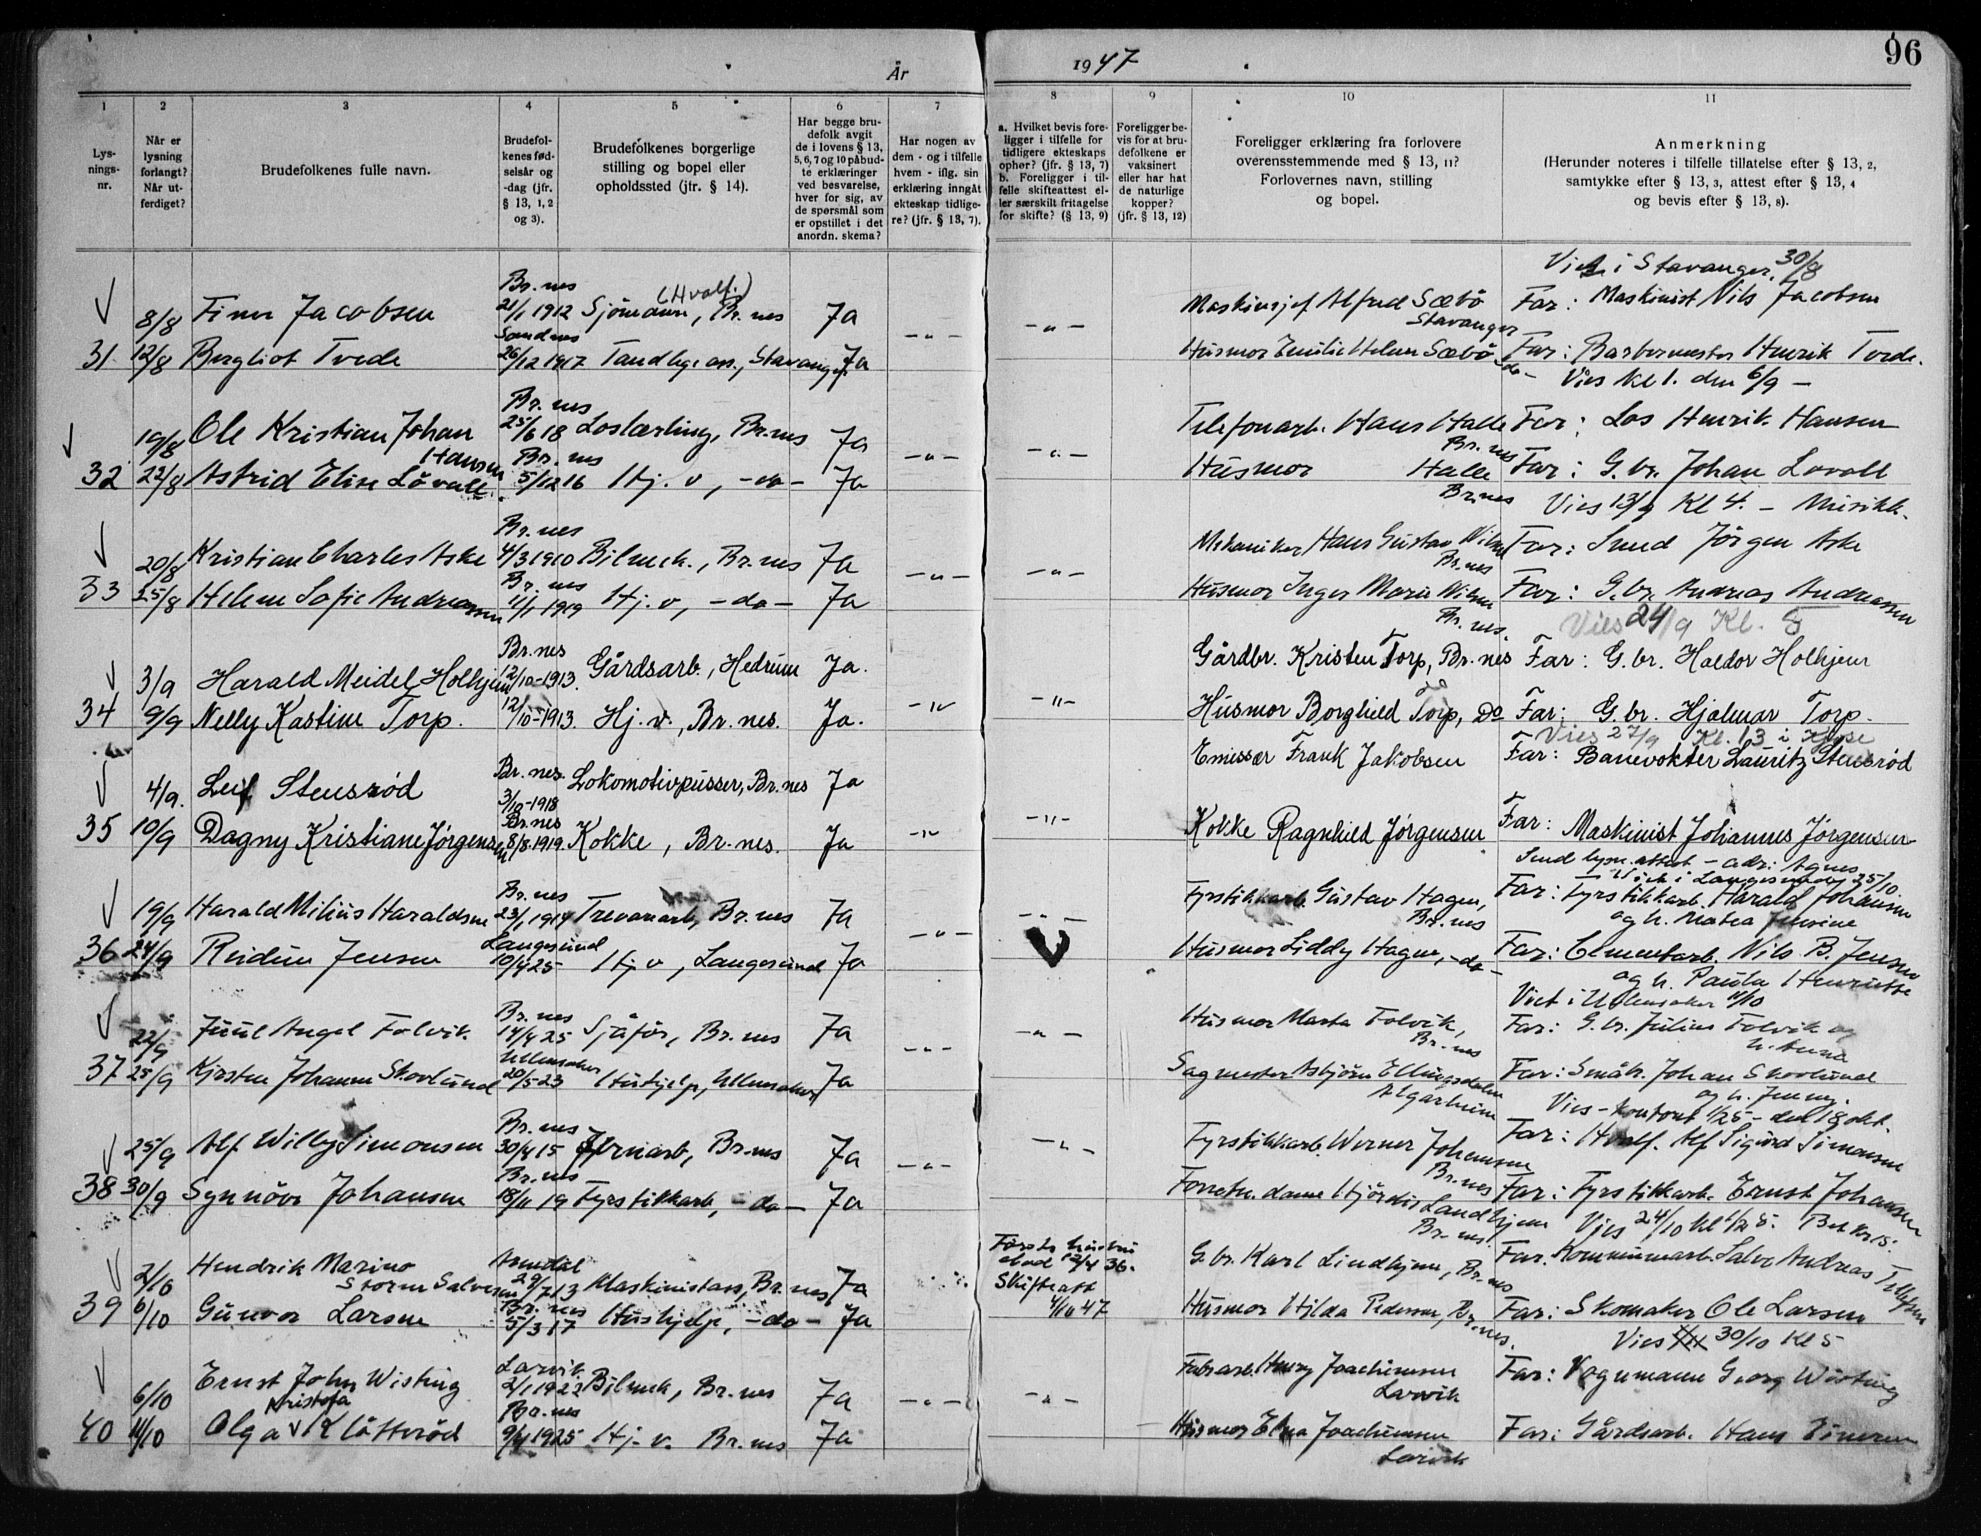 År
1947
96
1
2
3
4
5
6
7
8
9
10
11
Lys-
nings-
nr.
Når er
lysning
forlangt?
Når ut-
ferdiget?
Brudefolkenes fulle navn.
Brudefol-
kenes fød-
selsår og
-dag (jfr.
§ 13, 1, 2
og 3).
Brudefolkenes borgerlige
stilling og bopel eller
opholdssted (jfr. § 14).
Har begge bru-
defolk avgit
de i lovens § 13,
5, 6, 7 og 10 påbud-
te erklæringer
ved besvarelse,
hver for sig, av
de spørsmål som
er opstillet i det
anordn. skema?
Har nogen av
dem - og i tilfelle
hvem - iflg. sin
erklæring inngått
ekteskap tidlige-
re? (jfr. § 13, 7).
a. Hvilket bevis fore-
ligger i tilfelle for
tidligere ekteskaps
ophør? (jfr. § 13, 7)
b. Foreligger i til-
felle skifteattest el-
ler særskilt fritagelse
for skifte? (§ 13, 9)
Foreligger be-
vis for at bru-
defolkene er
vaksinert
eller har hat
de naturlige
kopper?
(jfr. § 13, 12)
Foreligger erklæring fra forlovere
overensstemmende med § 13, 11?
Forlovernes navn, stilling
og bopel.
Anmerkning
(Herunder noteres i tilfelle tillatelse efter § 13, 2,
samtykke efter § 13, 3, attest efter § 13, 4
og bevis efter § 13, 8).
Viet i Stavanger 30/8
Br.nes (Hvalf.)
8/8 Finn Jacobsen 21/1 1912 Sjömann, Br.nes Ja Maskinsjef Alfred Sæbö Stavanger Far: Maskinist Nils Jacobsen
Sandnes
31 12/8 Bergliot Tvede 26/12 1917 Tandlege ass., Stavanger Ja -"- -"- Husmor Emilie Helen Sæbö -do- Far: Barbermester Henrik Tvede.
Vies kl 1. den 6/9 -
Br.nes
19/8 Ole Kristian Johan Hansen 25/6 18 Loslærling, Br.nes Ja Telefonarb. Hans Halle Br.nes Far: Los Henrik Hansen
Br.nes
32 22/8 Astrid Elise Lövall 5/12 16 Hj. v, -do- Ja -"- -"- Husmor Halle Br.nes Far: G.br. Johan Lovall
Vies 13/9 Kl 4. - Musikk.
Br.nes
20/8 Kristian Charles Aske 4/3 1910 Bilmek., Br.nes Ja Mekaniker Hans Gustav Br.nes Far: Smed Jörgen Aske
Br.nes
33 25/8 Helene Sofie Andreassen 11/1 1919 Hj. v, -do- Ja -"- -"- Husmor Inger Marie Br.nes. Far: G.br. Andreas Andreassen
Vies 24/9 Kl. 5
Br.nes
3/9 Harald Meidel Holhjem 12/10-1913. Gårdsarb., Hedrum Ja. Gårdbr. Kristen Torp, Br.nes Far: G.br. Haldor Holhjem
34 9/9 Nelly Kastine Torp. 12/10-1913. Hj. v., Br.nes. Ja. -"- -"- Husmor Borghild Torp, Do Far: G.br. Hjalmar Torp.
Vies 27/9 Kl. 13 i
4/9. Leif Stensrød Br.nes. 3/10-1918 Lokomotivpusser, Br.nes Ja Emissær Frank Jakobsen Far: Banevokter Lauritz Stensrød
Br.nes
35 10/9 Dagny Kristiane Jørgensen 8/8 1919. Kokke, Br.nes. Ja -"- -"- Kokke Ragnhild Jørgensen Far: Maskinist Johannes Jørgensen
Send lysn.attest - adr: Agnes
Viet i Langesund 25/10.
Br.nes
19/9 Harald Milius Haraldsen 23/1 1914 Trevarearb, Br.nes Ja Fyrstikkarb. Gustav Hagen, Br.nes Far: Fyrstikkarb. Harald Johansen
og h. Matea
Langesund
36 24/9 Reidun Jensen 10/4 25 Hj v, Langesund Ja -"- -"- Husmor Liddy Hagen, -do- Far: Cementarb. Nils B. Jensen
og h. Paula Henriette
Viet i Ullensaker 4/10
Br.nes
22/9 Juul Angel Folvik. 14/4 25 Sjåför, Br.nes Ja Husmor Marta Folvik, Br.nes Far: G.br. Julius Folvik og
h. Anna
Ullensaker
37 25/9 Kirsten Johanne Skovlund 20/5 23 Hushjelp, Ullensaker Ja -"- -"- Sagmester Asbjörn Ellingsdalen Algarheim Far: Småbr. Johan Skovlund
og h. Jenny.
Vies - kontoret 1/2 5 - den 18 okt.
Br.nes
25/9 Alf Willy Simonsen 30/4 15 Jernarb, Br.nes Ja Fyrstikkarb. Werner Johansen Br.nes Far: Hvalf. Alf Sigurd Simonsen
Br.nes
38 30/9 Synnöve Johansen 18/11 19 Fyrstikkarb, -do- Ja -"- -"- Forretn. dame Hjördis Landhjem Br.nes. Far: Fyrstikkarb. Ernst Johansen
Vies 24/10 Kl 1/2 5.
Arendal Første hustru
död 12/4 36.
2/10 Hendrik Marino Storm Salvesen 29/7 13 Maskinistass, Br.nes Ja Skifteatt 4/10 47 G.br. Karl Lindhjem, Br.nes Far: Kommunearb. Salve Andreas Tellefsen
Br.nes
39 6/10 Gunvor Larsen 5/3 17 Hushjelp, -do- Ja Husmor Hilda Pedersen, Br.nes. Far: Skomaker Ole Larsen
Vies 30/10 Kl 5
Larvik
6/10 Ernst John Wisting 2/1 1923 Bilmek, Br.nes Ja Fabrarb. Henry Joachimsen Larvik Far: Vognmann Georg Wisting
Kristofa Br.nes
40 11/10 Olga Klåtterød 9/4 1925 Hj. v. Br.nes Ja -"- -"- Husmor Elna Joachimsen Larvik Far: Gårdsarb. Hans Einar